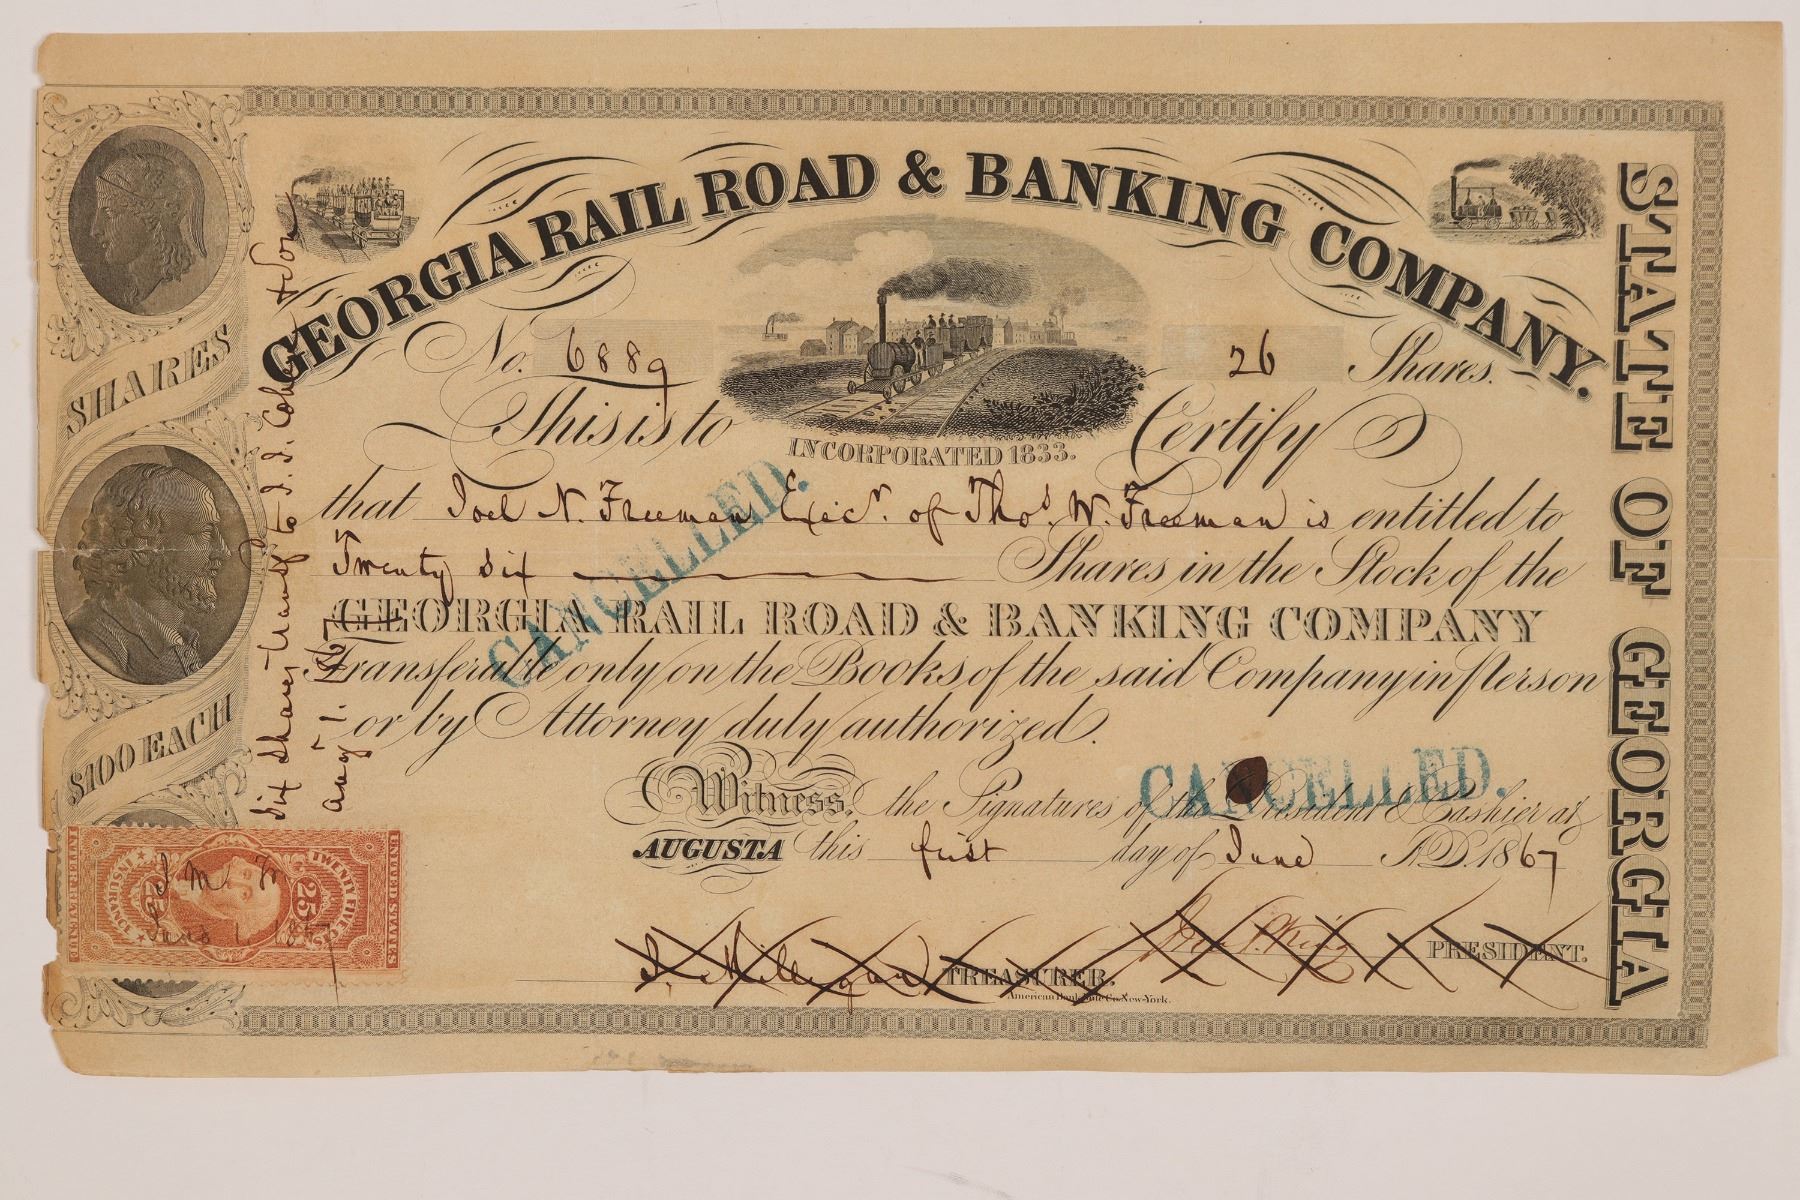 GEORGIA RAIL ROAD & BANKING COMPANY.
No. 6889
26 Shares.
This is to Certify
INCORPORATED 1833.
that Joel N. Freeman Exec.r of Thos. W. Freeman is entitled to
Twenty Six Shares in the Stock of the
GEORGIA RAIL ROAD & BANKING COMPANY
Transferable only on the Books of the said Company in Person
or by Attorney duly authorized.
Witness, the Signatures of the President & Cashier at
AUGUSTA this first day of June A.D. 1867
John P. King PRESIDENT.
J. Milligan TREASURER.
American Bank Note Co. New-York.
CANCELLED.
CANCELLED.
SHARES
$100 EACH
STATE OF GEORGIA
Six Shares transf to J. J. Cohen & Son
Aug 1. 1867
UNITED STATES
TWENTY FIVE CTS.
25
25
INSURANCE
INTER. REVENUE
J M
June 1, 1867